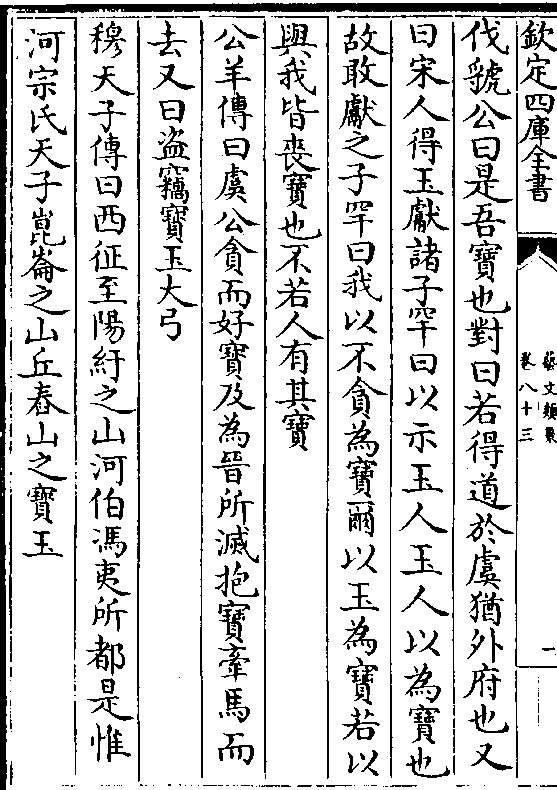 欽定四庫全書
藝文類聚
卷八十三
一
伐虢公曰是吾寶也對曰若得道於虞猶外府也又
曰宋人得玉獻諸子罕曰以示玉人玉人以為寶也
故敢獻之子罕曰我以不貪為寶爾以玉為寶若以
與我皆喪寶也不若人有其寶
公羊傳曰虞公貪而好寶及為晉所滅抱寶牽馬而
去又曰盜竊寶玉大弓
穆天子傳曰西征至陽紆之山河伯馮夷所都是惟
河宗氏天子崑崙之山丘舂山之寶玉